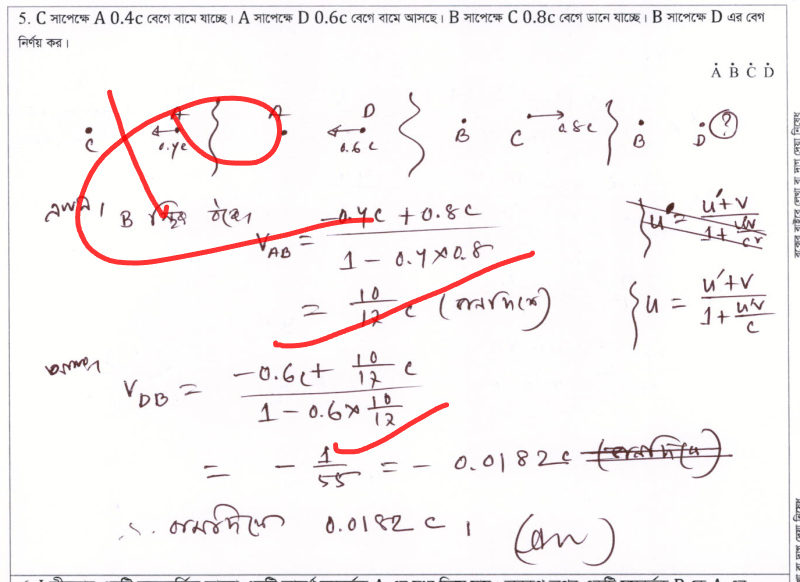 5. C সাপেক্ষে A 0.4c বেগে বামে যাচ্ছে। A সাপেক্ষে D 0.6c বেগে বামে আসছে। B সাপেক্ষে C 0.8c বেগে ডানে যাচ্ছে। B সাপেক্ষে D এর বেগ
নির্ণয় কর।
A B C D
C 0.4c A D 0.6c B C 0.8c B D ?
B স্থির ধরে।
V_AB = (-0.4c + 0.8c) / (1 - 0.4×0.8)
u' = (u'+v) / (1 + u'v/c²)
= 10/17 c
u = (u'+v) / (1 + u'v/c)
V_DB = (-0.6c + 10/17 c) / (1 - 0.6×10/17)
= - 1/55 = - 0.0182c
∴ বামদিকে 0.0182 c । (Ans)